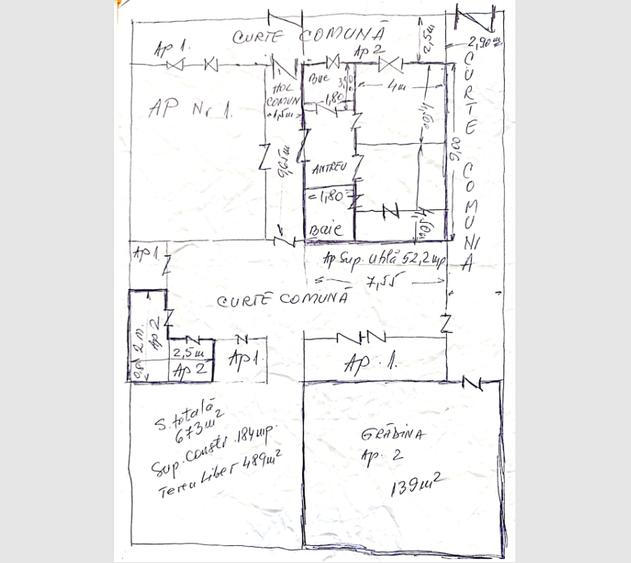 CURTE COMUNĂ
2,5m
2,90m
Ap 1.
Ap 2
Baie
4m
AP Nr 1.
HOL
COMUN
1,5m
1,80
4,50
9,65m
9,00
ANTREU
=1,80=
Baie
4,50
CURTE COMUNĂ
Ap Sup. utilă 52,2mp
7,55
Ap 1
CURTE COMUNĂ
2 m.
Ap 2
2,5m
Ap 2
Ap 1.
AP. 1.
S. totală
673 m2
Sup. constr. 184mp.
Teren Liber 489m2
GRĂDINA
Ap. 2
139m2